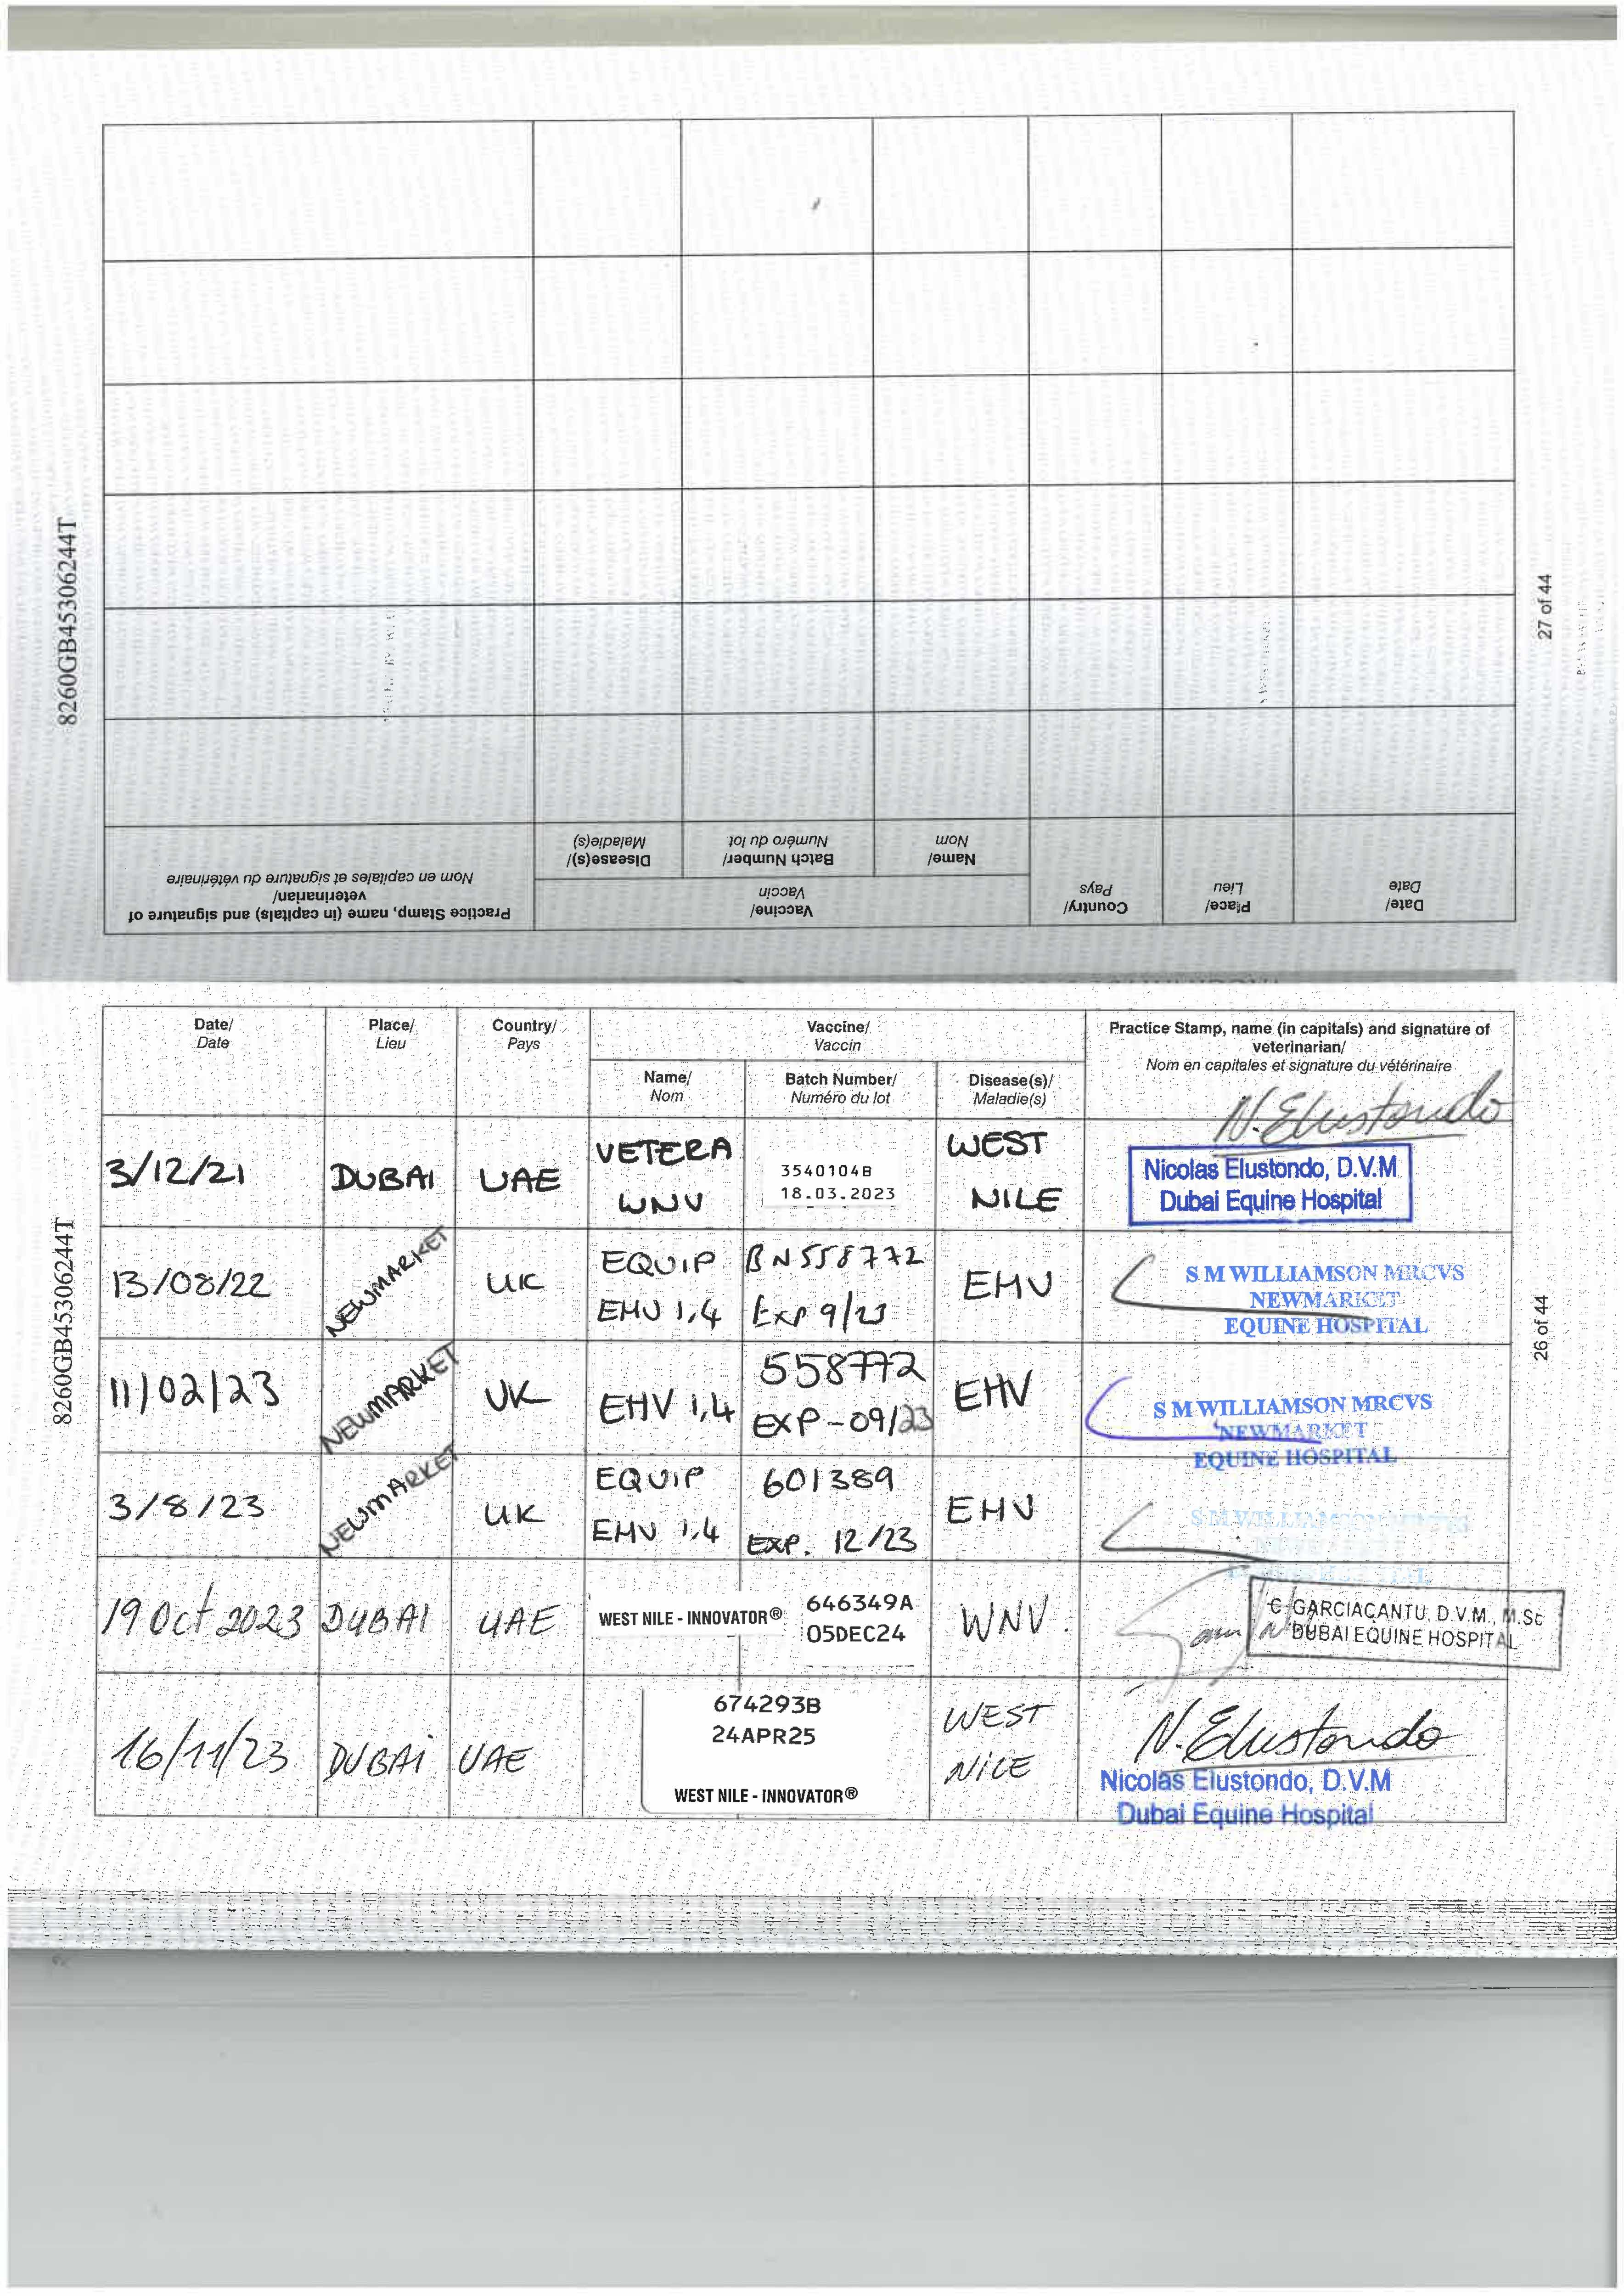 8260GB45306244T
27 of 44
Date/
Date
Place/
Lieu
Country/
Pays
Vaccine/
Vaccin
Name/
Nom
Batch Number/
Numéro du lot
Disease(s)/
Maladie(s)
Practice Stamp, name (in capitals) and signature of
veterinarian/
Nom en capitales et signature du vétérinaire
8260GB45306244T
26 of 44
Date/
Date
Place/
Lieu
Country/
Pays
Vaccine/
Vaccin
Name/
Nom
Batch Number/
Numéro du lot
Disease(s)/
Maladie(s)
Practice Stamp, name (in capitals) and signature of
veterinarian/
Nom en capitales et signature du vétérinaire
3/12/21
DUBAI
UAE
VETERA
WNV
3540104B
18.03.2023
WEST
NILE
N. Elustondo
Nicolas Elustondo, D.V.M
Dubai Equine Hospital
13/08/22
NEWMARKET
UK
EQUIP
EHV 1,4
BN558772
Exp 9/23
EHV
S M WILLIAMSON MRCVS
NEWMARKET
EQUINE HOSPITAL
11/02/23
NEWMARKET
UK
EHV 1,4
558772
EXP-09/23
EHV
S M WILLIAMSON MRCVS
NEWMARKET
EQUINE HOSPITAL
3/8/23
NEWMARKET
UK
EQUIP
EHV 1,4
601389
Exp. 12/23
EHV
S M WILLIAMSON
19 Oct 2023
DUBAI
UAE
WEST NILE - INNOVATOR®
646349A
05DEC24
WNV.
C. GARCIACANTU, D.V.M., M.Sc
DUBAI EQUINE HOSPITAL
16/11/23
DUBAi
UAE
674293B
24APR25
WEST NILE - INNOVATOR®
WEST
NiLE
N. Elustondo
Nicolas Elustondo, D.V.M
Dubai Equine Hospital